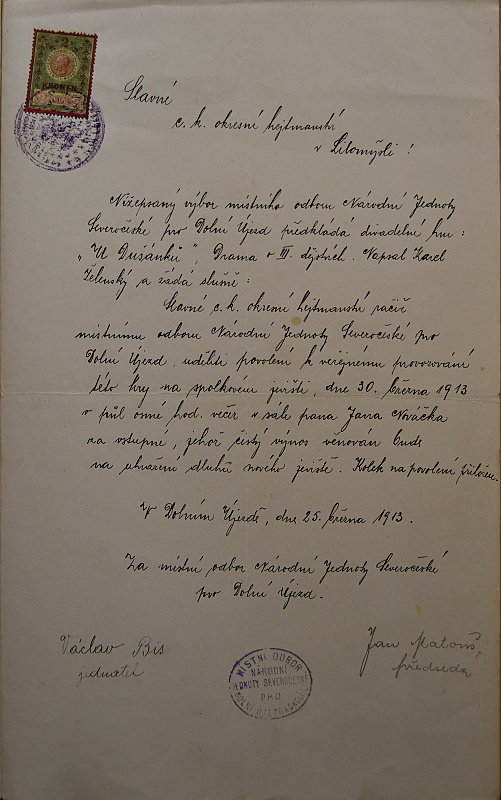 2
KRONEN
Slavné
c. k. okresní hejtmanství
v Litomyšli!
Nížepsaný výbor místního odboru Národní Jednoty
Severočeské pro Dolní Újezd předkládá divadelní hru:
„U Dušánků", Drama o III. dějstvích. Napsal Karel
Želenský a žádá slušně:
Slavné c. k. okresní hejtmanství račiž
místnímu odboru Národní Jednoty Severočeské pro
Dolní Újezd, uděliti povolení k veřejnému provozování
této hry na spolkovém jevišti, dne 30. června 1913
v půl osmé hod. večer v sále pana Jana Nováčka
za vstupné, jehož čistý výnos věnován bude
na uhražení dluhů nového jeviště. Kolek na povolení přiložen.
V Dolním Újezdě, dne 25. června 1913.
Za místní odbor Národní Jednoty Severočeské
pro Dolní Újezd.
Václav Bis
jednatel
Jan Matouš,
předseda
MÍSTNÍ ODBOR
NÁRODNÍ
JEDNOTY SEVEROČESKÉ
PRO
DOLNÍ ÚJEZD